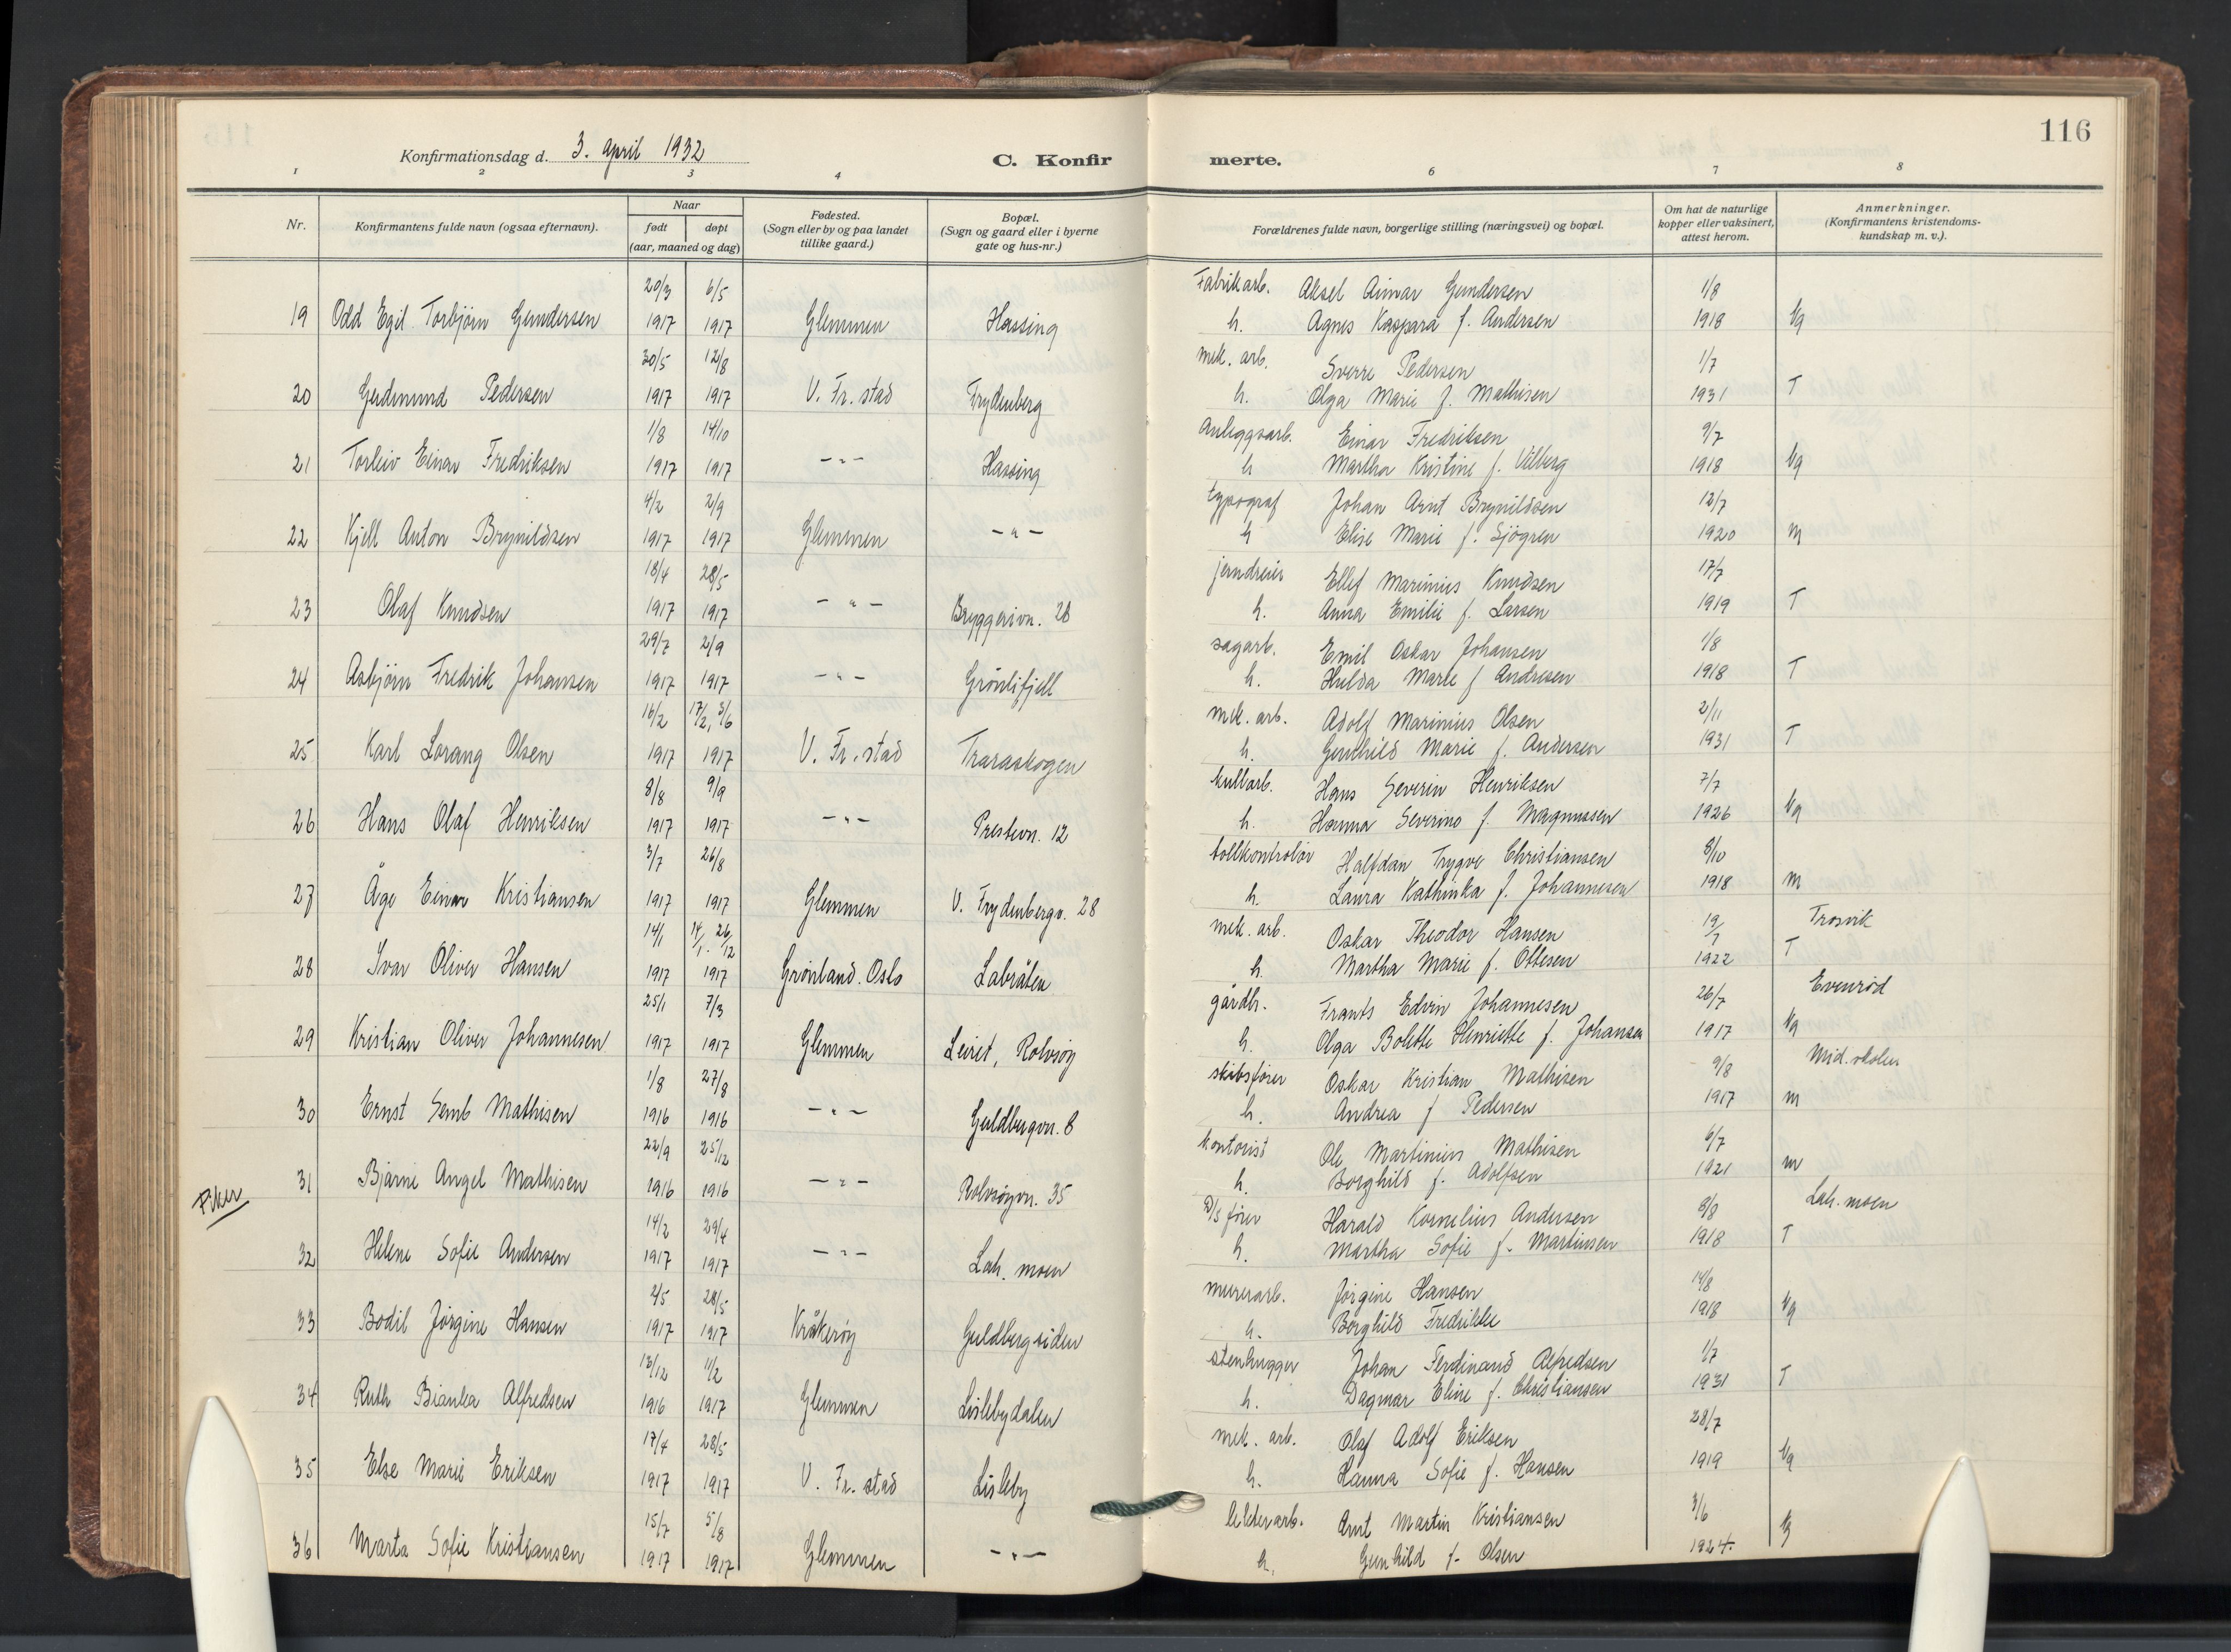 116
Konfirmationsdag d. 3. April 1932
C. Konfir merte.
1 2 3 4 6 7 8
Nr.
Konfirmantens fulde navn (ogsaa efternavn).
Naar
født døpt
(aar, maaned og dag)
Fødested.
(Sogn eller by og paa landet
tillike gaard.)
Bopæl.
(Sogn og gaard eller i byerne
gate og hus-nr.)
Forældrenes fulde navn, borgerlige stilling (næringsvei) og bopæl.
Om hat de naturlige
kopper eller vaksinert,
attest herom.
Anmerkninger.
(Konfirmantens kristendoms-
kundskap m. v.).
20/3 6/5 Fabrikarb. Aksel Aimar Gundersen 1/8
19 Odd Egil Torbjörn Gundersen 1917 1917 Glemmen Hassing h. Agnes Kaspara f. Andersen 1918 Vg
30/5 12/8 mek. arb. Sverre Pedersen 1/7
20 Gudmund Pedersen 1917 1917 V. Fr. stad Frydenberg h. Olga Marie f. Mathisen 1931 T
1/8 14/10 Anleggsarb. Einar Fredriksen 9/7
21 Torleiv Einar Fredriksen 1917 1917 -"- Hassing h Martha Kristine f. Vilberg 1918 Vg
4/2 2/9 typograf Johan Arnt Brynildsen 12/7
22 Kjell Anton Brynildsen 1917 1917 Glemmen -"- h Elise Marie f. Sjögren 1920 m
18/4 28/5 jerndreier Ellef Marinius Knudsen 17/7
23 Olaf Knudsen 1917 1917 -"- Bryggerivn. 28 h. Anna Emilie f. Larsen 1919 T
29/7 2/9 sagarb. Emil Oskar Johansen 1/8
24 Asbjörn Fredrik Johansen 1917 1917 -"- Grönlifjell h. Hulda Marie f Andresen 1918 T
16/2 17/2, 3/6 mek. arb. Adolf Marinius Olsen 2/11
25 Karl Lorang Olsen 1917 1917 V. Fr. stad Traraskogen h. Gunhild Marie f. Andersen 1931 T
8/8 9/9 kullarb. Hans Severin Henriksen 7/7
26 Hans Olaf Henriksen 1917 1917 -"- Prestevn. 12 h. Hanna Severine f. Magnussen 1926 Vg
3/7 26/8 tollkontrolör Halfdan Trygve Christiansen 8/10
27 Åge Einar Kristiansen 1917 1917 Glemmen V. Frydenbergv. 28 h. Laura Kathinka f. Johannesen 1918 m
14/1 14/1. 26/12 mek. arb. Oskar Theodor Hansen 19/7 Trosvik
28 Ivar Oliver Hansen 1917 1917 Grönland. Oslo Labråten h. Martha Marie f. Ottesen 1922 T
25/1 7/3 gårdbr. Frants Edvin Johannesen 26/7 Evenröd
29 Kristian Oliver Johannesen 1917 1917 Glemmen Leiret, Rolvsöy h. Olga Bolette Henriette f. Johansen 1917 Vg
1/8 27/8 skibsförer Oskar Kristian Mathisen 9/8 Mid. skolen
30 Ernst Semb Mathisen 1916 1916 -"- Guldbergvn. 8 h. Andrea f Pedersen 1917 m
22/9 25/12 kontorist Ole Martinius Mathisen 6/7
31 Bjarne Angel Mathisen 1916 1916 -"- Rolvsöyvn. 35 h. Borghild f. Adolfsen 1921 m
Piker
14/2 29/4 D/S förer Harald Kornelius Andersen 8/8 Lah. moen
32 Helene Sofie Andersen 1917 1917 -"- Lah. moen h. Martha Sofie f. Martinsen 1918 T
2/5 28/5 murerarb. Jörgine Hansen 14/8
33 Bodil Jörgine Hansen 1917 1917 Kråkeröy Guldbergsiden h. Borghild Fredrikke 1918 Vg
13/12 11/2 stenhugger Johan Ferdinand Alfredsen 1/7
34 Ruth Bianka Alfredsen 1916 1917 Glemmen Lislebydalen h. Dagmar Eline f. Christiansen 1931 T
17/4 28/5 mek. arb. Olaf Adolf Eriksen 28/7
35 Else Marie Eriksen 1917 1917 V. Fr. stad Lisleby h. Hanna Sofie f. Hansen 1919 Vg
15/7 5/8 Arnt Martin Kristiansen 3/6
36 Marta Sofie Kristiansen 1917 1917 Glemmen -"- h. Gunhild f. Olsen 1924. Vg